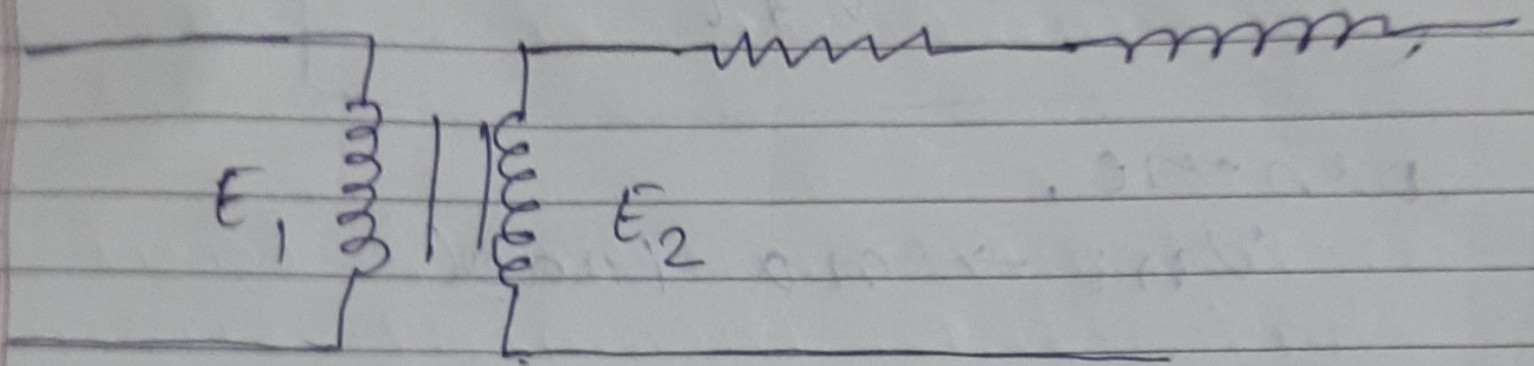 E1 E2